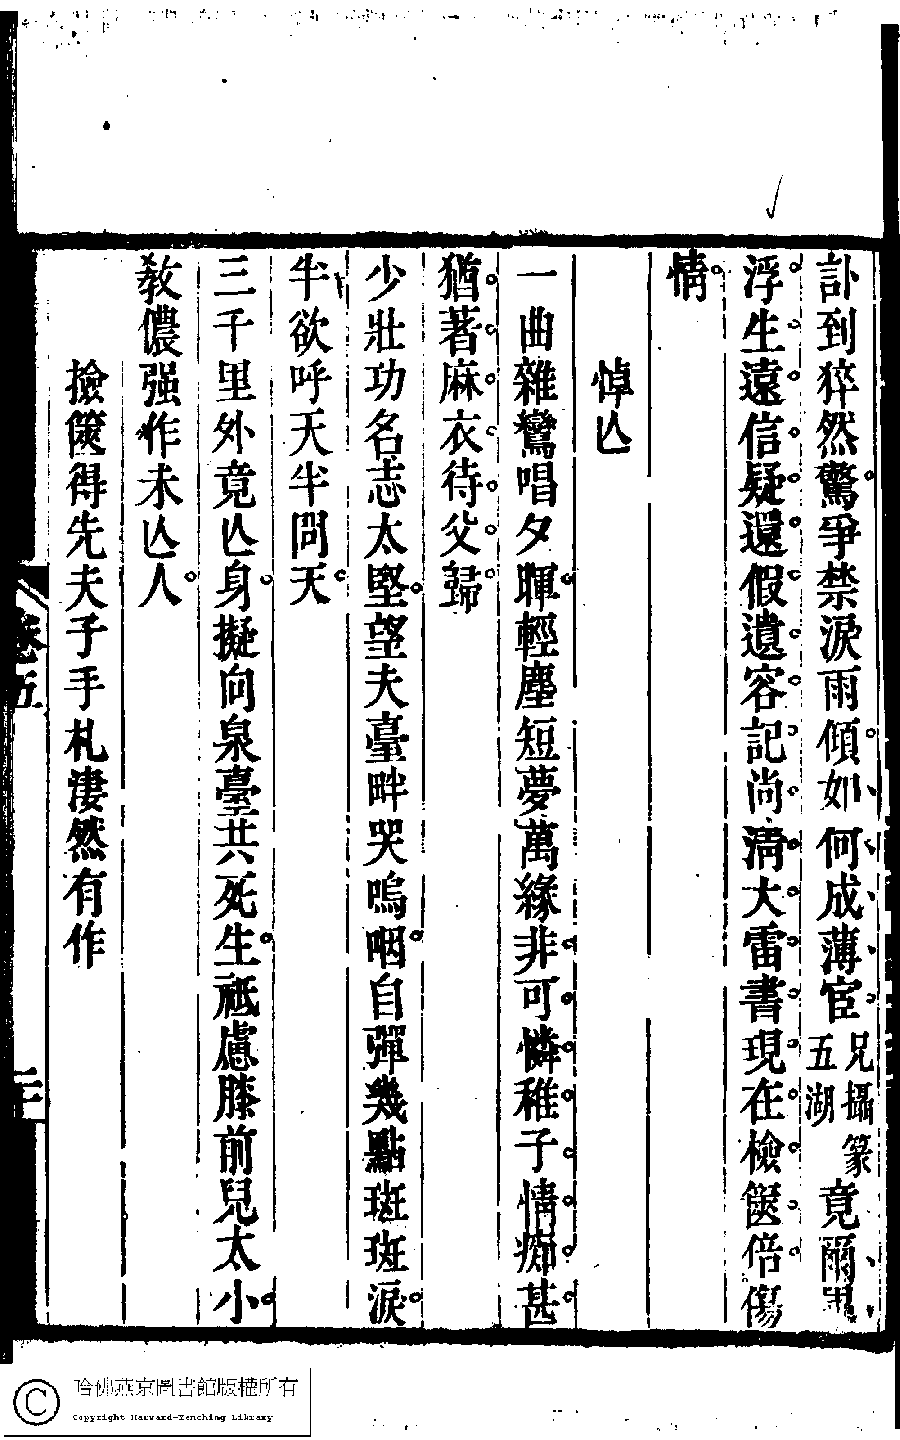 訃到猝然驚爭禁淚雨傾如何成薄宦兄攝篆五湖竟爾
浮生遠信疑還假遺容記尚淸大雷書現在檢篋倍傷
情
悼亾
一曲離鸞唱夕暉輕塵短夢萬緣非可憐稚子情痴甚
猶著麻衣待父歸
少壯功名志太堅望夫臺畔哭嗚咽自彈幾點斑斑淚
半欲呼天半問天
三千里外竟亾身擬向泉臺共死生祗慮膝前兒太小
敎儂强作未亾人
撿篋得先夫子手札淒然有作
卷五
二十
哈佛燕京圖書館版權所有
Copyright Harvard-Yenching Library